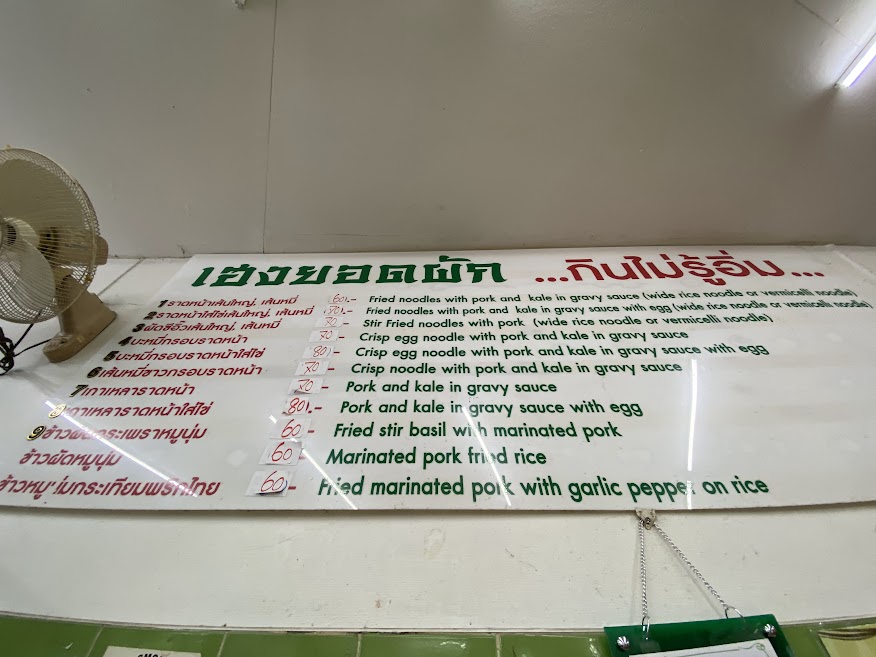 เฮงยอดผัก ...กินไม่รู้อิ่ม...
1 ราดหน้าเส้นใหญ่, เส้นหมี่ 60.- Fried noodles with pork and kale in gravy sauce (wide rice noodle or vermicelli noodle)
2 ราดหน้าใส่ไข่เส้นใหญ่, เส้นหมี่ 70.- Fried noodles with pork and kale in gravy sauce with egg (wide rice noodle or vermicelli noodle)
3 ผัดซีอิ๊วเส้นใหญ่, เส้นหมี่ 70 - Stir Fried noodles with pork (wide rice noodle or vermicelli noodle)
4 บะหมี่กรอบราดหน้า 70 - Crisp egg noodle with pork and kale in gravy sauce
5 บะหมี่กรอบราดหน้าใส่ไข่ 80 - Crisp egg noodle with pork and kale in gravy sauce with egg
6 เส้นหมี่ขาวกรอบราดหน้า 70 - Crisp noodle with pork and kale in gravy sauce
7 เกาเหลาราดหน้า 70 - Pork and kale in gravy sauce
8 เกาเหลาราดหน้าใส่ไข่ 80.- Pork and kale in gravy sauce with egg
9 ข้าวผัดกระเพราหมูนุ่ม 60 - Fried stir basil with marinated pork
ข้าวผัดหมูนุ่ม 60 - Marinated pork fried rice
ข้าวหมูนุ่มกระเทียมพริกไทย 60 - Fried marinated pork with garlic pepper on rice